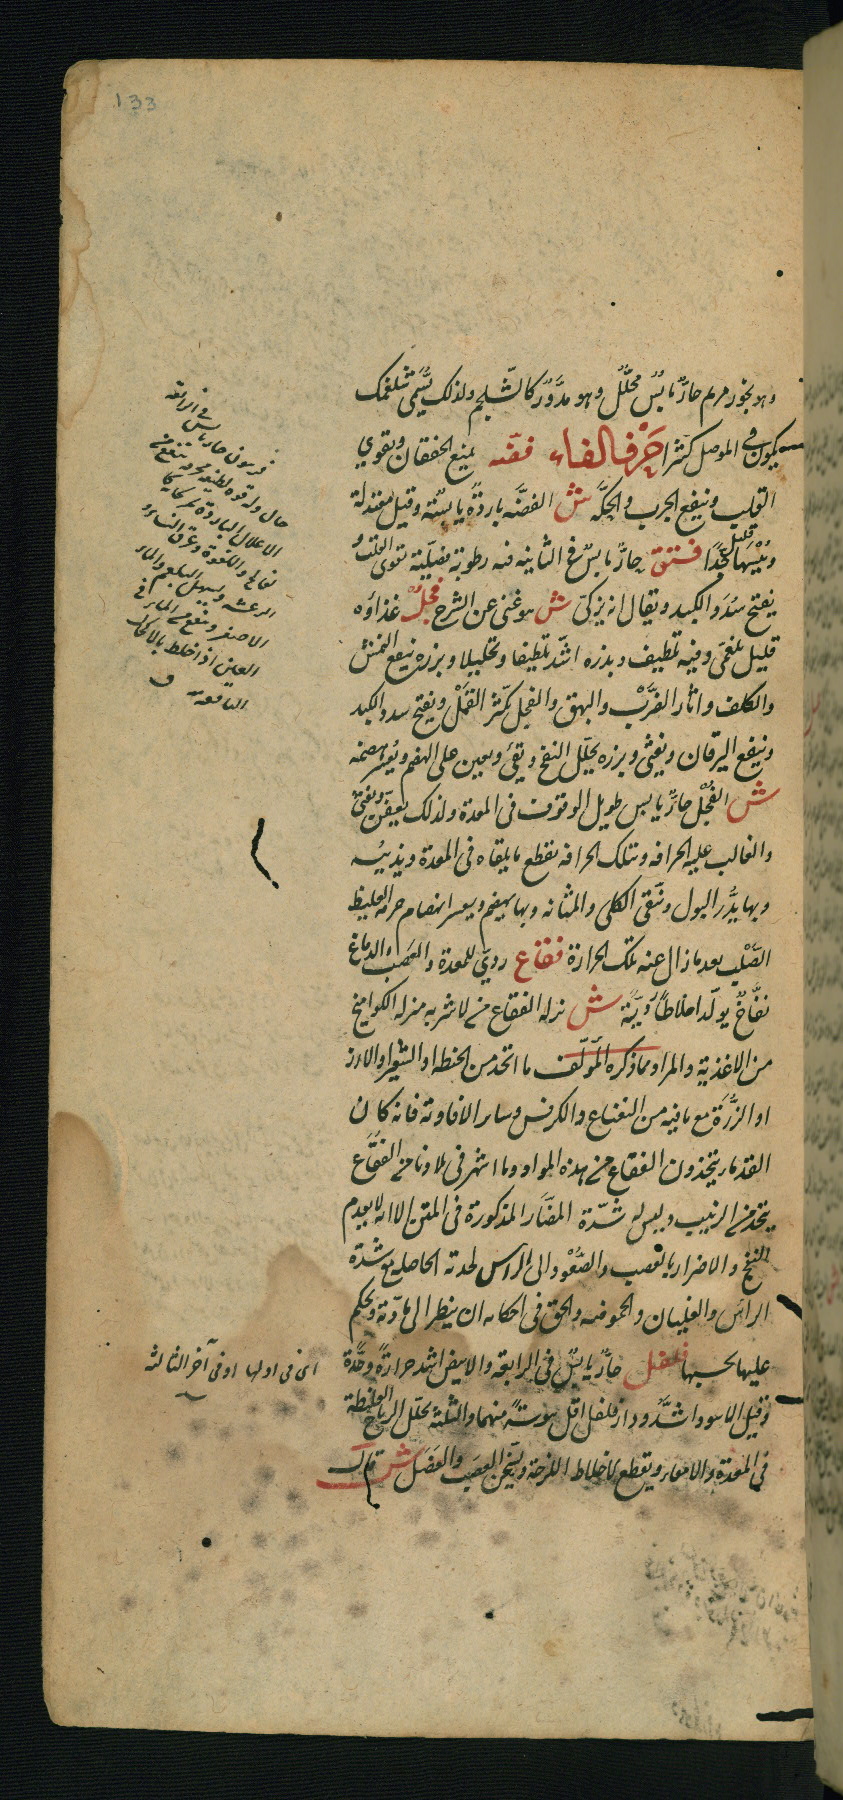 133
وهو بخور مريم حارّ يابس محلّل وهو مدوّر كالشلجم ولذلك يسمّى شلغمك
يكون في الموصل كثيرا حرف الفاء فضّه يمنع الخفقان ويقوي
القلب وينفع الجرب والحكّه ش الفضّه باردة يابسة وقيل معتدلة
ويُبْسها قليل جدّا فستق حارّ يابس في الثانيه فيه رطوبة فضليّة يقوى القلب و
يفتح سدد الكبد ويقال انه يزكى ش هو غنى عن الشرح فجل غذاؤه
قليل بلغمى وفيه تلطيف وبذره اشد تلطيفا وتحليلا وبزره ينفع النمش
والكلف واثار الضرب والبهق والفجل يكثر القمل ويفتح سدد الكبد
وينفع اليرقان ويغثى وبزره يحلّل النفخ ويقئ ويعين على الهضم ويعسر هضمه
ش الفجل حارّ يابس طويل الوقوف في المعدة ولذلك يعفّن ويغثى
والغالب عليه الحرافه وبتلك الحرافه يقطع ما يلقاه في المعدة ويذيبه
وبها يدرّ البول وينقى الكلى والمثانه وبها يهضم ويعسر انهضام جرمه الغليظ
الصلب بعد ما زال عنه تلك الحرارة فقاع ردي للمعدة والعصب والدماغ
نفّاخ يولّد اخلاطا رديّة ش نزله الفقاع من الاشربه منزله الكواميخ
من الاغذية والمراد مما ذكره المؤلّف ما اتخذ من الحنطه او الشعير او الارز
او الذرة مع ما فيه من النعناع والكرفس وساير الافاوية فانه كان
القدماء يتخذون الفقاع من هذه المواد وما اشتهر في بلادنا من الفقاع
يتخذ من الزبيب وليس له شدّة المضار المذكورة في المتن الا انه لا يعدم
النفخ والاضرار بالعصب والصعود الى الراس لحدته الحاصله مع شدة
الراس والغليان والحموضه والحق في احكامه ان ينظر الى مادّته ويحكم
عليها بحسبها فلفل حارّ يابس في الرابعة والابيض اشد حرارة وحدّة
وقيل الاسود اشدّ ودار فلفل اقل يبوسة منهما والثلثة يحلّل الرياح الغليظة
في المعدة والامعاء ويقطع الاخلاط اللزجة ويسخن العصب والعضل ش قال
فربيون حار يابس في الرابعة
الرعشه ويسهل البلغم والماء
الاصفر وينفع من الماء في
العين اذا خلط بالاكحال
اى في اولها او في آخر الثالثة